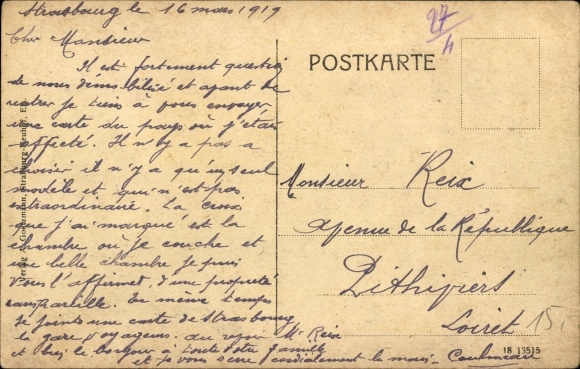 Strasbourg le 16 mars 1919
Cher Monsieur
Il est fortement question
de nous démobilisé et avant de
rentrer je tiens à vous envoyer
une carte du pays où j'étais
affecté. Il n'y a pas a
choisir il n'y a qu'un seul
modèle et qui n'est pas
extraordinaire. La croix
que j'ai marqué est la
chambre ou je couche et
une belle chambre je puis
vous l'affirmer, d'une propreté
En même temps
je joints une carte de Strasbourg
la gare voyageurs. au revoir Mr Reix
et bien le bonjour à toute votre famille
et je vous serre cordialement la main
27
4
POSTKARTE
Monsieur Reix
Avenue de la République
Pithiviers
Loiret
15
18 13515